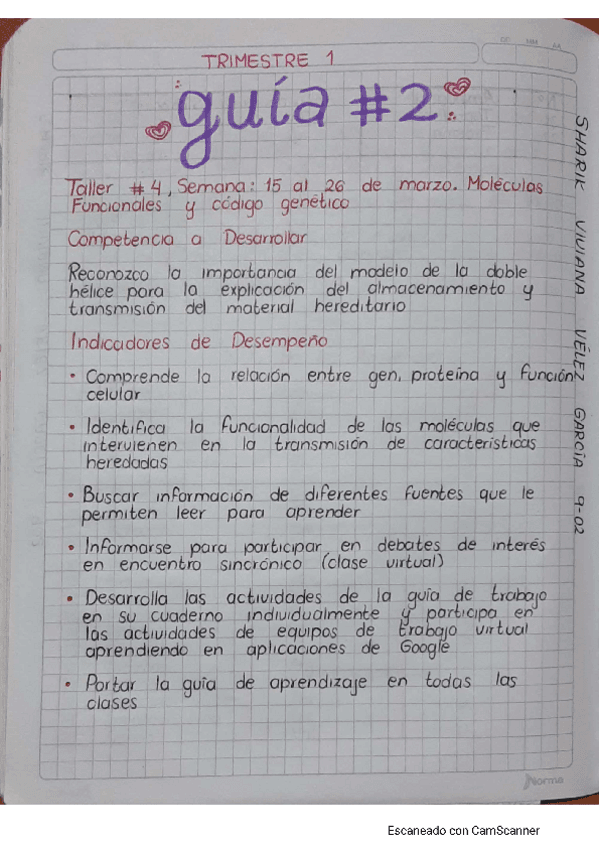 TRIMESTRE 1
guía #2
Taller #4, Semana: 15 al 26 de marzo. Moléculas
Funcionales y código genético
Competencia a Desarrollar
Reconozco la importancia del modelo de la doble
hélice para la explicación del almacenamiento y
transmisión del material hereditario
Indicadores de Desempeño
• Comprende la relación entre gen, proteína y función
celular
• Identifica la funcionalidad de las moléculas que
intervienen en la transmisión de características
heredadas
• Buscar información de diferentes fuentes que le
permiten leer para aprender
• Informarse para participar en debates de interés
en encuentro sincrónico (clase virtual)
• Desarrolla las actividades de la guía de trabajo
en su cuaderno individualmente y participa en
las actividades de equipos de trabajo virtual
aprendiendo en aplicaciones de Google
• Portar la guía de aprendizaje en todas las
clases
SHARIK VIVIANA VÉLEZ GARCÍA 9-02
Norma
Escaneado con CamScanner